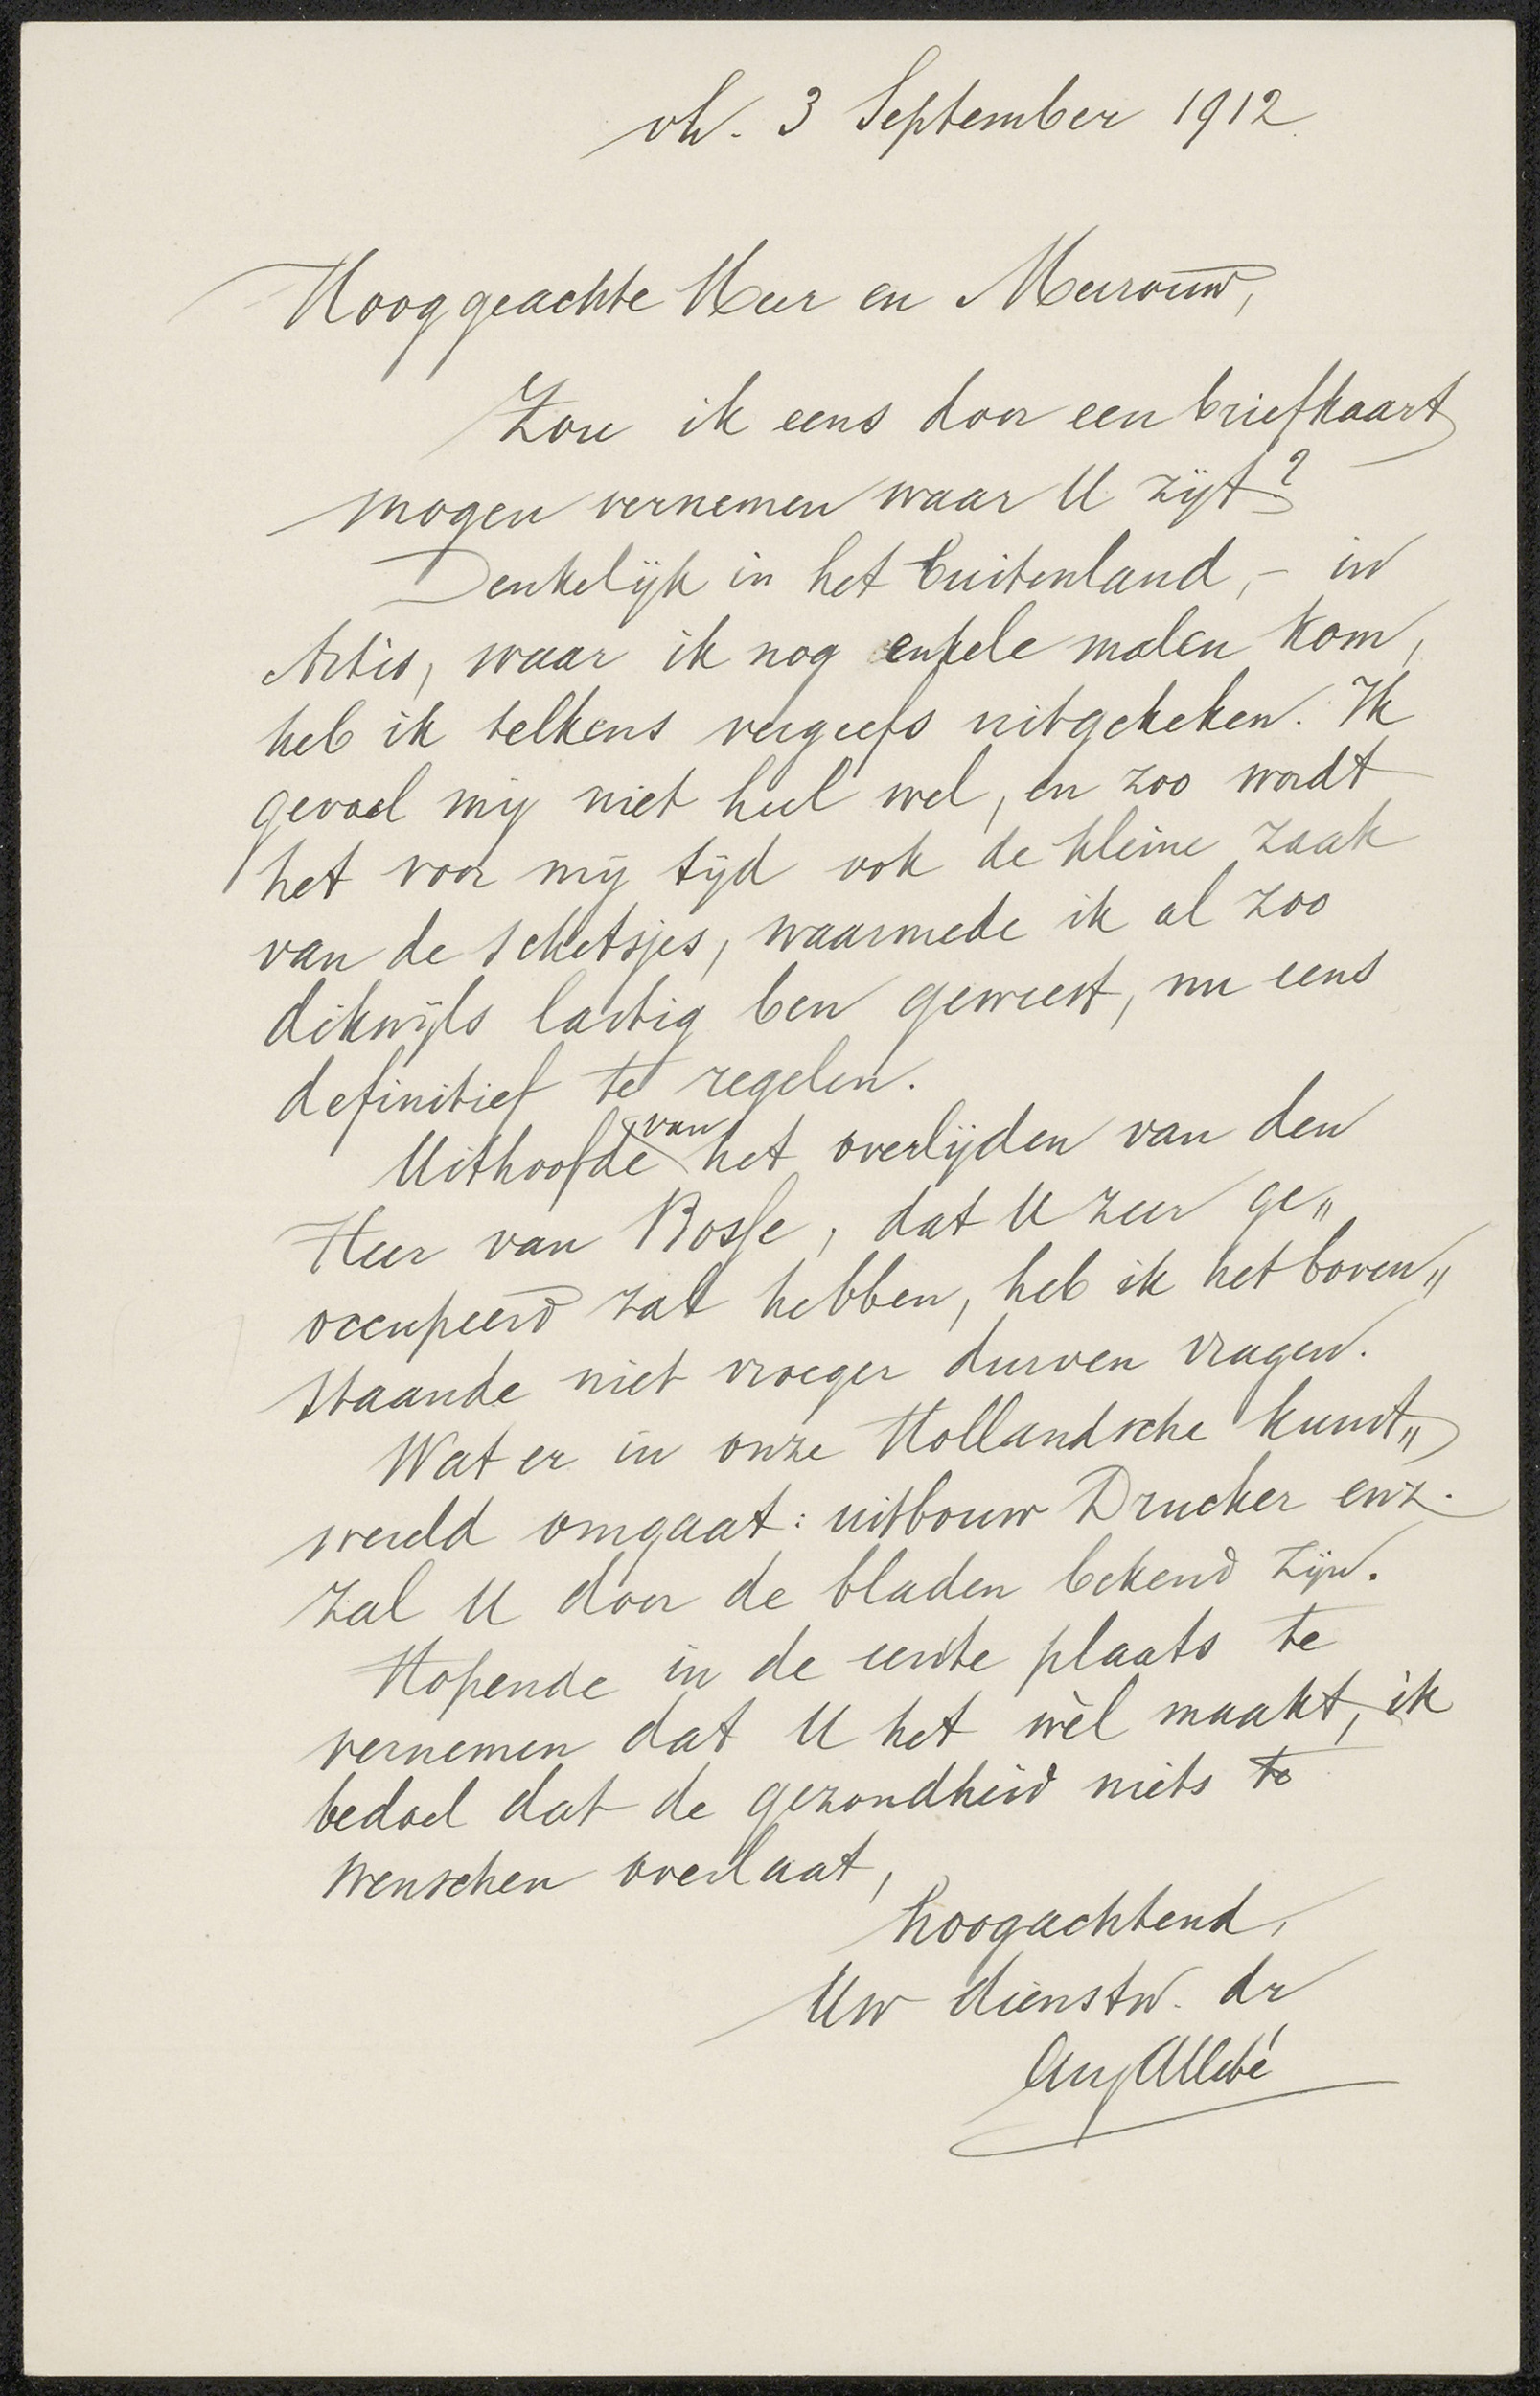 vh. 3 September 1912
Hooggeachte Heer en Mevrouw,
Zou ik eens door een briefkaart
mogen vernemen waar U zijt?
Denkelijk in het buitenland, – in
Artis, waar ik nog enkele malen kom,
heb ik telkens vergeefs uitgekeken. Ik
gevoel mij niet heel wel, en zoo wordt
het voor mij tijd ook de kleine zaak
van de schetsjes, waarmede ik al zoo
dikwijls lastig ben geweest, nu eens
definitief te regelen.
Uithoofde van het overlijden van den
Heer van Bosse, dat U zeer ge„
occupeerd zal hebben, heb ik het boven„
staande niet vroeger durven vragen.
Wat er in onze Hollandsche kunst„
wereld omgaat: uitbouw Drucker enz.
zal U door de bladen bekend zijn.
Hopende in de eerste plaats te
vernemen dat U het wèl maakt, ik
bedoel dat de gezondheid niets te
wenschen overlaat,
hoogachtend,
Uw dienstw. dr
Aug Allebé